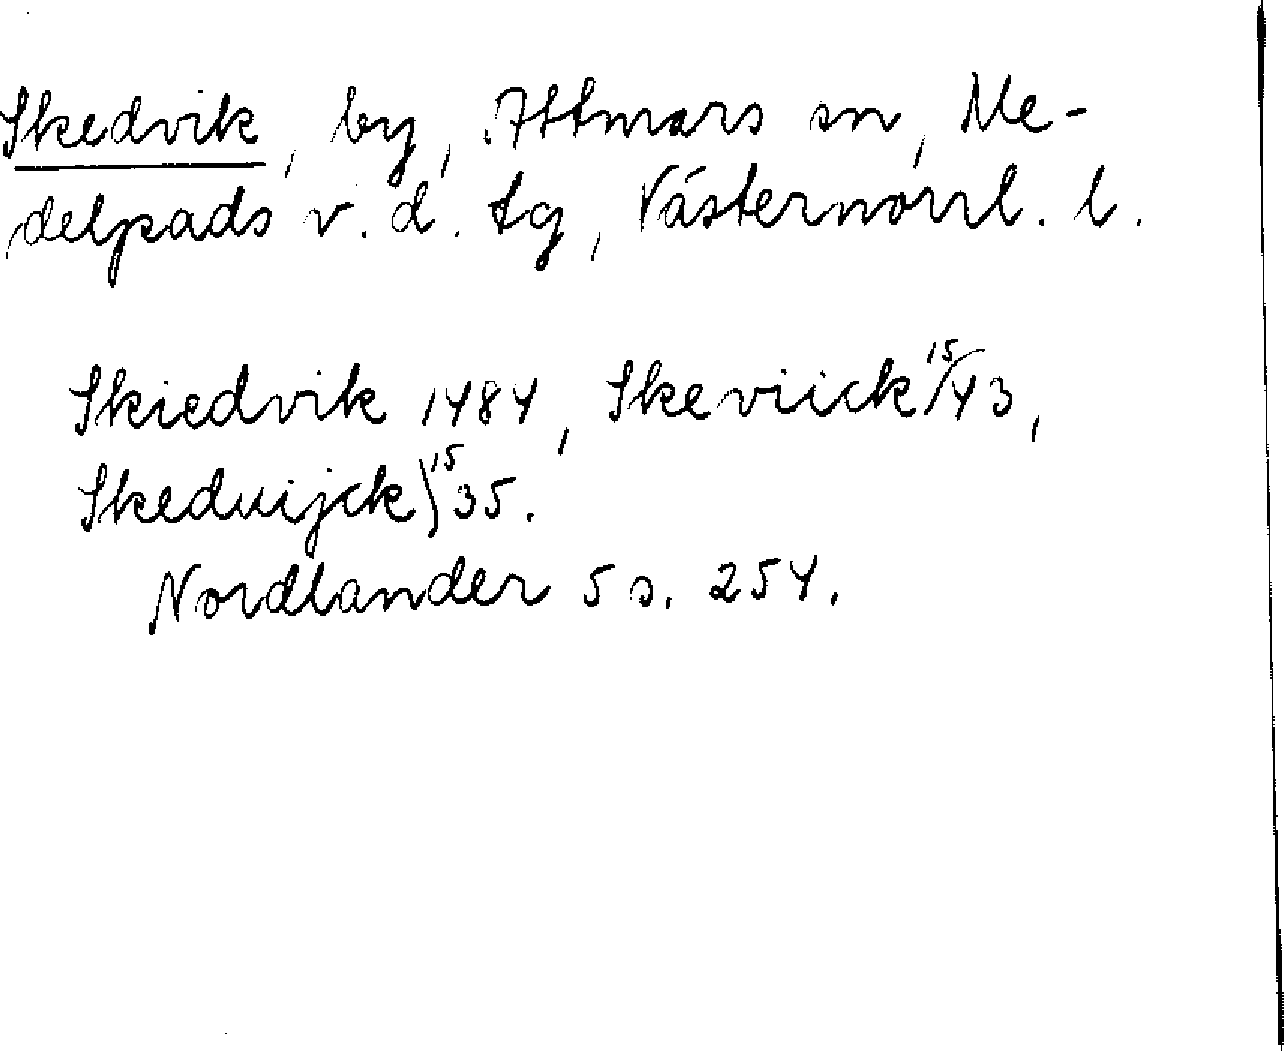 Skedvik, by, Attmars sn, Me-
delpads v. d. tg, Västernorrl. l.
Skiedvik 1484, Skeviick 15/43,
Skeduijck 15 35.
Nordlander 5 s. 254.